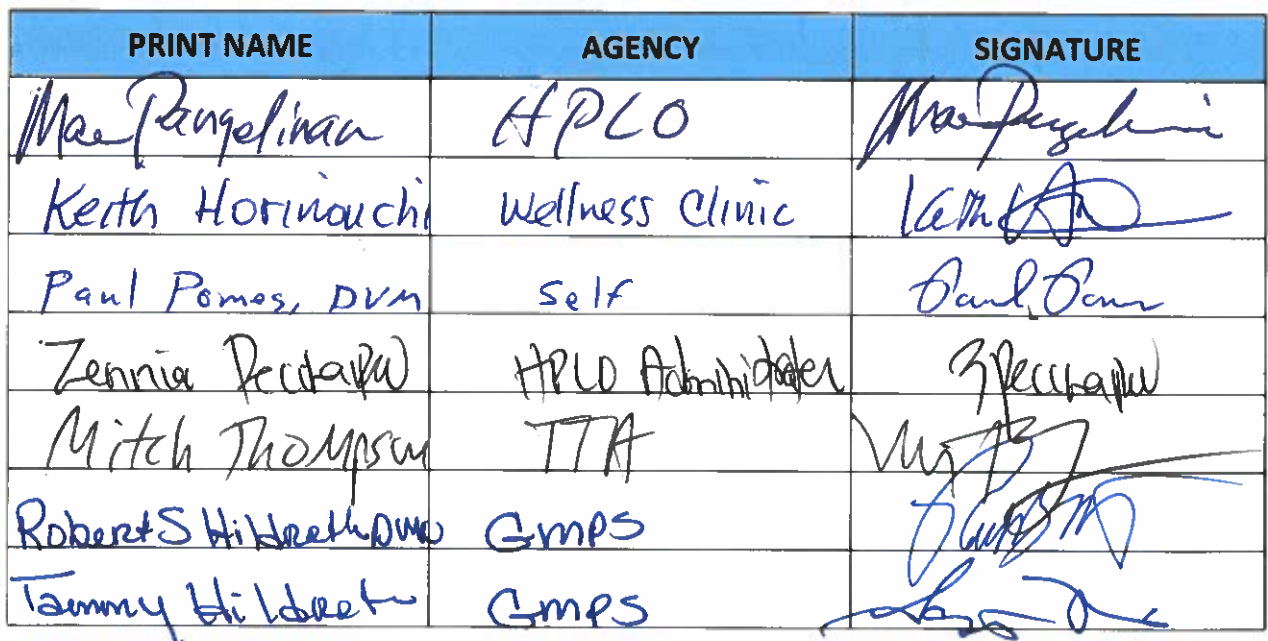 PRINT NAME AGENCY SIGNATURE
Mae Pangelinan HPLO Mae Pangelinan
Keith Horinouchi Wellness Clinic Keith
Paul Pomes, DVM Self Paul Pomes
Zennia Pecina HPLO Administrator
Mitch Thompson TTA
Robert S Hildreth DVM GMPS
Tammy Hildreth GMPS